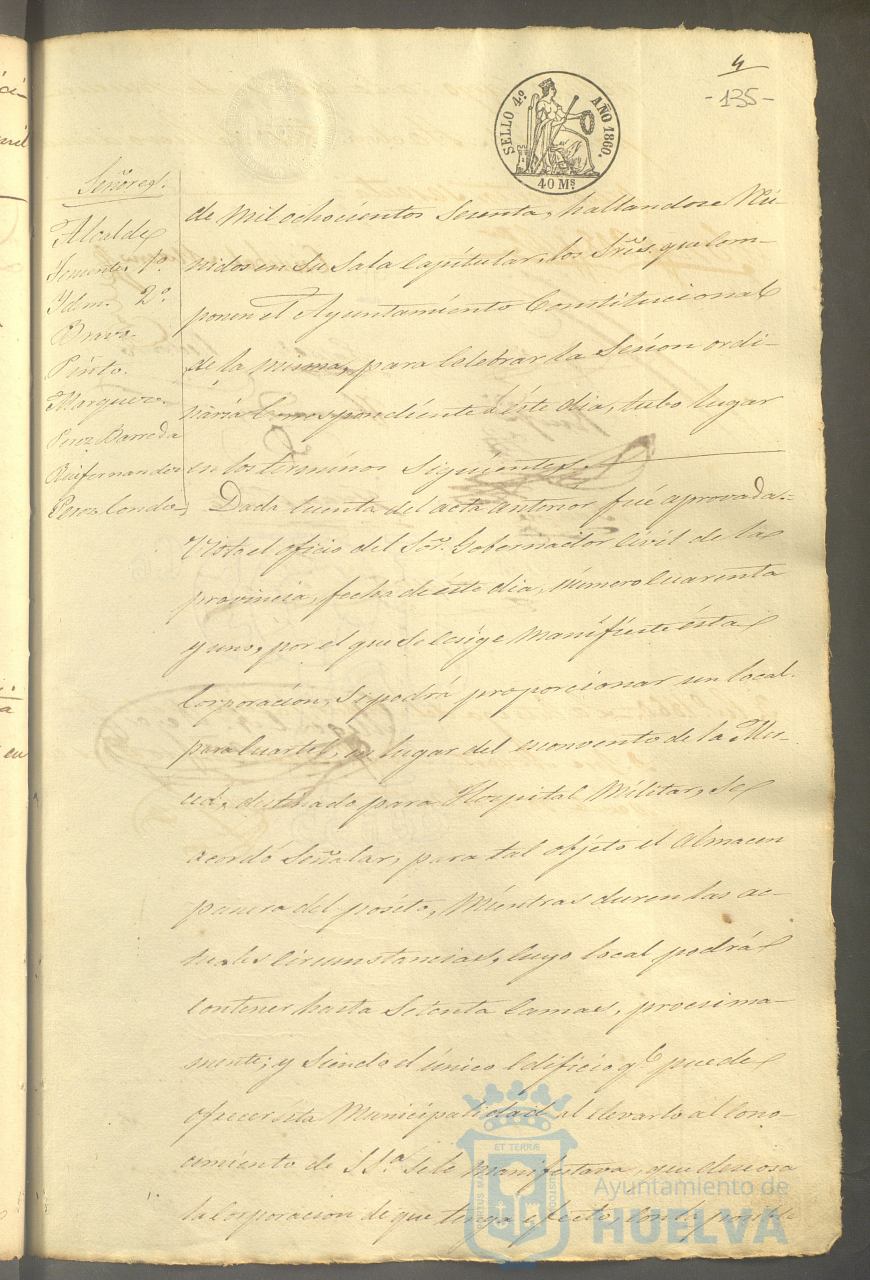 4
-135-
SELLO 4.º AÑO 1860.
40 Ms.
Señores.
Alcalde
Teniente 1º.
Idem. 2º.
Bravo.
Pinto.
Marquez.
Perez Barreda
Ruifernandez
Perez Conde,
de mil ochocientos sesenta, hallandose reu-
nidos en su sala Capitular, los Sres. que com-
ponen el Ayuntamiento Constitucional
de la misma, para celebrar la Sesion ordi-
naria correspondiente á éste dia, tubo lugar
en los terminos siguientes.
Dada cuenta del acta anterior fué aprovada=
Visto el oficio del Sor. Gobernador Civil de la
provincia, fecha de éste dia, número cuarenta
y uno, por el que se exige manifieste ésta
Corporacion, si podrá proporcionar un local
para Cuartel, en lugar del exconvento de la Mer-
ced, destinado para Hospital Militar, se
acordó señalar, para tal objeto el almacen
panera del posito, mientras duren las ac-
tuales circunstancias, cuyo local podrá
contener hasta setenta camas, procsima-
mente; y siendo el único edificio qe. puede
ofrecer esta Municipalidad al elevarlo al cono-
cimiento de S.Sa. se le manifestara, que deseosa
la Corporacion de que tenga efecto, con la posible
ET TERRÆ
Ayuntamiento de
HUELVA